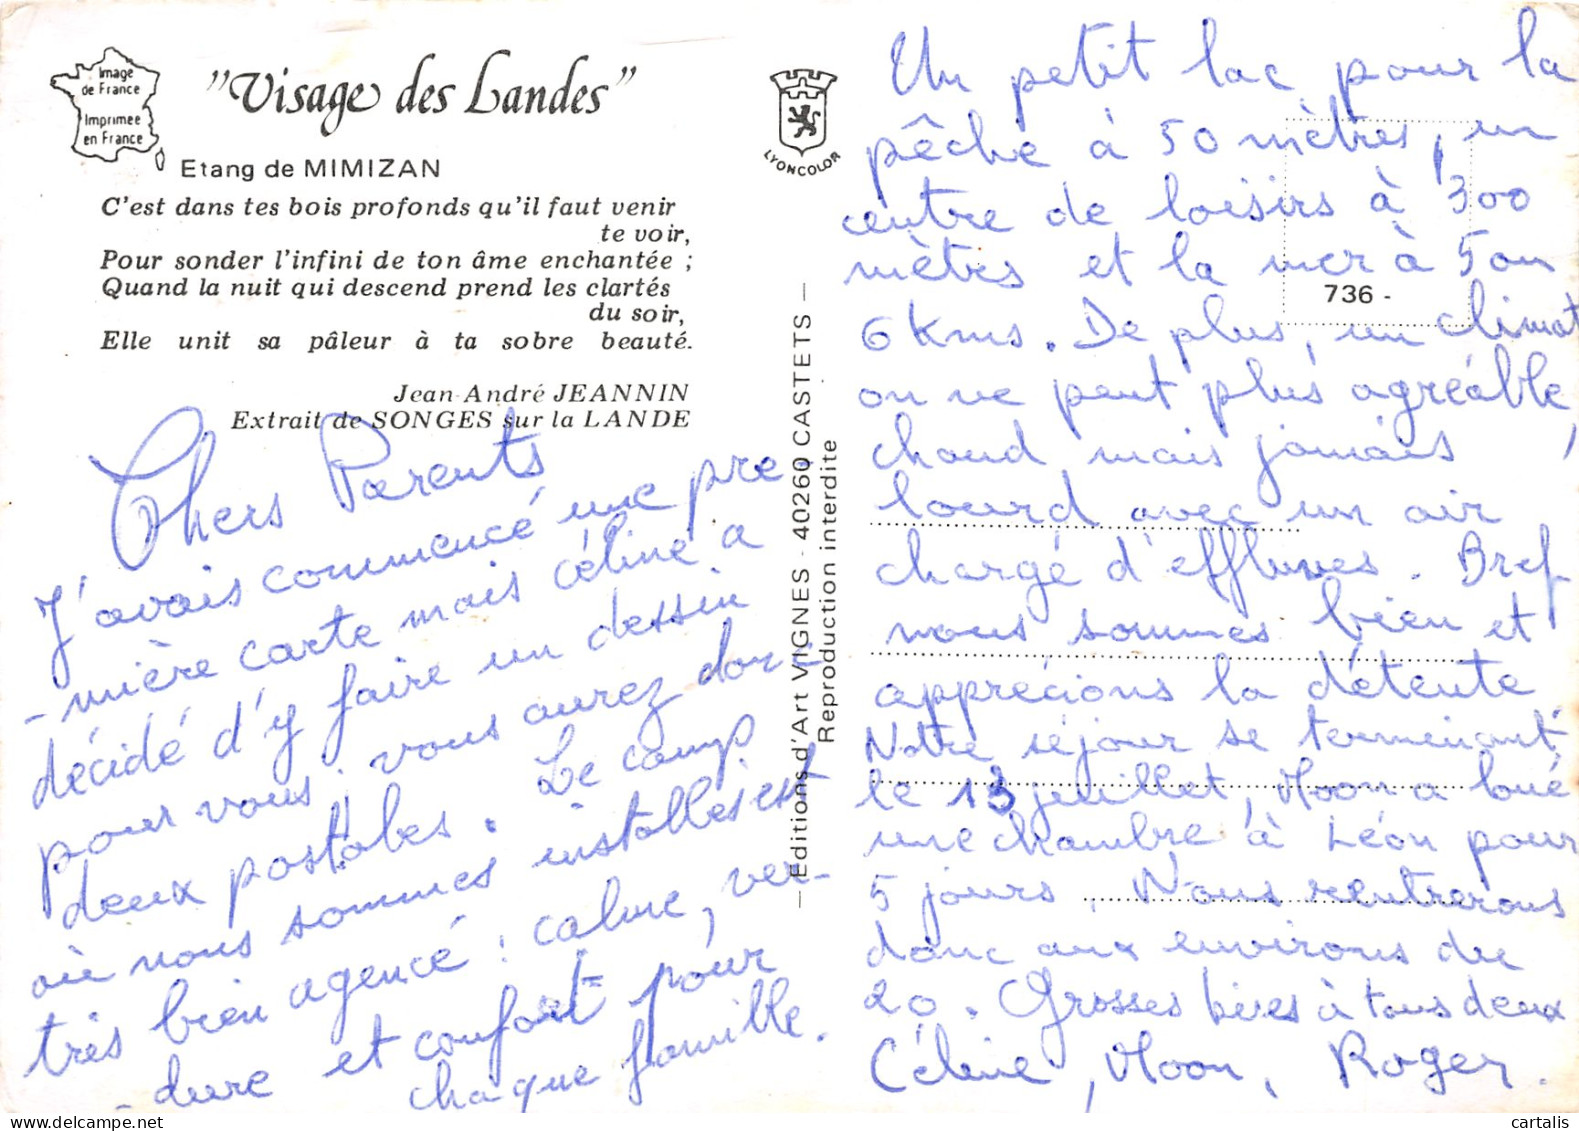 Image
de France
Imprimee
en France
"Visage des Landes"
Etang de MIMIZAN
C'est dans tes bois profonds qu'il faut venir
te voir,
Pour sonder l'infini de ton âme enchantée ;
Quand la nuit qui descend prend les clartés
du soir,
Elle unit sa pâleur à ta sobre beauté.
Jean-André JEANNIN
Extrait de SONGES sur la LANDE
Chers Parents
J'avais commencé une pre.
-mière carte mais céline a
décidé d'y faire un dessin
pour vous, vous aurez donc
deux postales. Le camp
où nous sommes installés est
très bien agencé : calme, ver-
-dure et confort pour
chaque famille.
LYONCOLOR
— Editions d'Art VIGNES - 40260 CASTETS —
Reproduction interdite
736 -
Un petit lac pour la
pêche à 50 mètres, un
centre de loisirs à 300
mètres et la mer à 5 ou
6 Kms. De plus, un climat
on ne peut plus agréable,
chaud mais jamais
lourd avec un air
chargé d'effluves. Bref
nous sommes bien et
apprécions la détente
Notre séjour se terminant
le 13 juillet, Moon a loué
une chambre à Léon pour
5 jours. Nous rentrerons
donc aux environs du
20. Grosses bises à tous deux
Céline, Moon, Roger.
cartalis